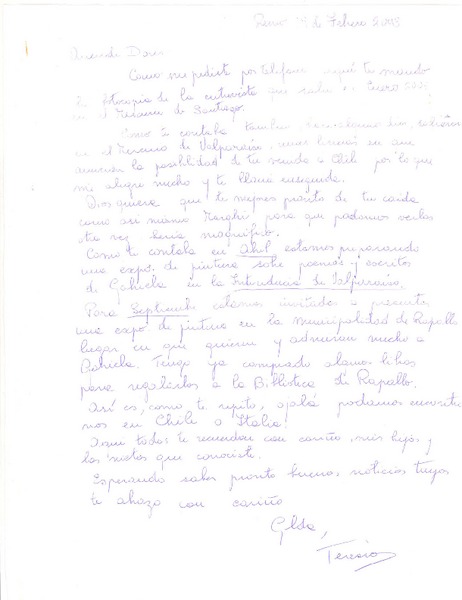 de Febrero 2003
Querida Doris
Como me pediste por teléfono aquí te mando
la fotocopia de la entrevista que salió en
en el Mercurio de Santiago.
Como te contaba también
en el Mercurio de Valparaíso, unas líneas en que
anuncian la posibilidad de tu venida a Chile por lo que
me alegré mucho y te llamé enseguida.
Dios quiera que te mejores pronto de tu caída
como así mismo para que podamos verlos
otra vez sería magnífico.
Como te contaba en Abril estamos preparando
una expo. de pintura sobre poemas y escritos
de Gabriela en la Intendencia de Valparaíso.
Para Septiembre estamos invitados a presentar
una expo de pintura en la municipalidad de Rapallo
lugar en que quieren y admiran mucho a
Gabriela. Tengo ya comprado algunos libros
para regalarlos a la Biblioteca di Rapallo.
Así es, como te repito, ojalá podamos encontrar
nos en Chile o Italia!
Aquí todos te recuerdan con cariño, mis hijos y
los nietos que conociste.
Esperando saber pronto buenas noticias tuyas
te abrazo con cariño
Gilda,
Teresa